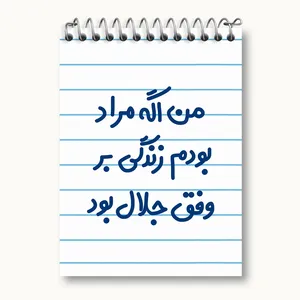 من اگه مراد
بودم زندگی بر
وفق جلال بود